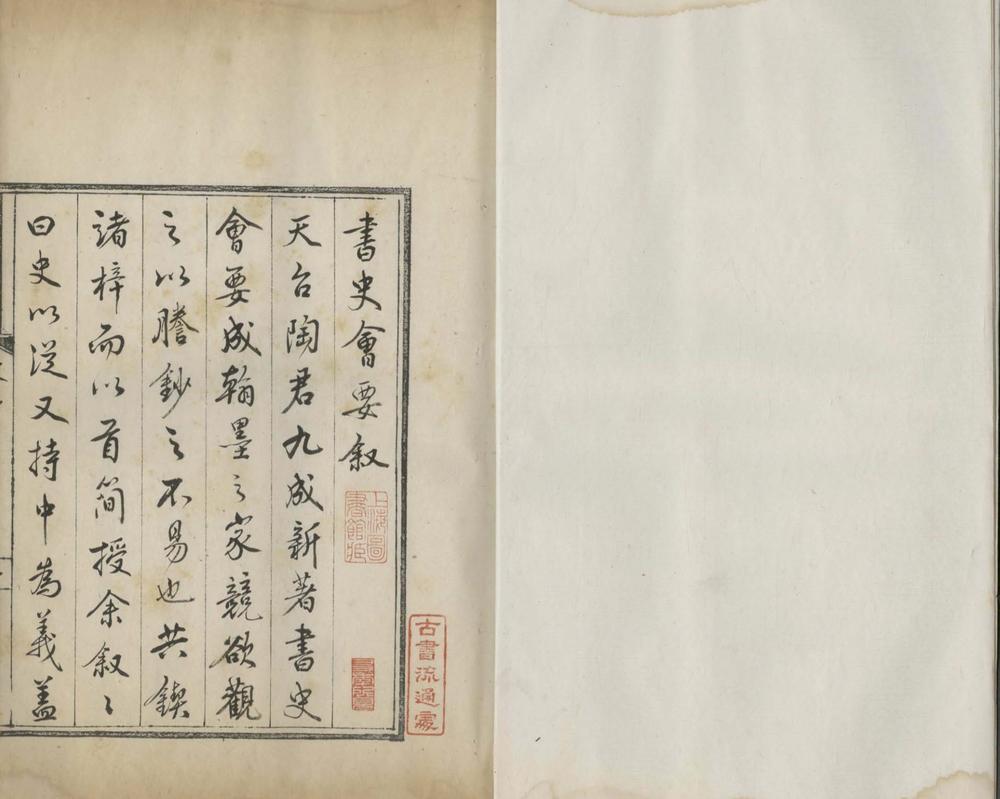 書史會要敘
天台陶君九成新著書史
會要成翰墨之家競欲觀
之以謄鈔之不易也共鍥
諸梓而以首簡授余敘〻
曰史以從又持中為義蓋
上海圖書館藏
古書流通處